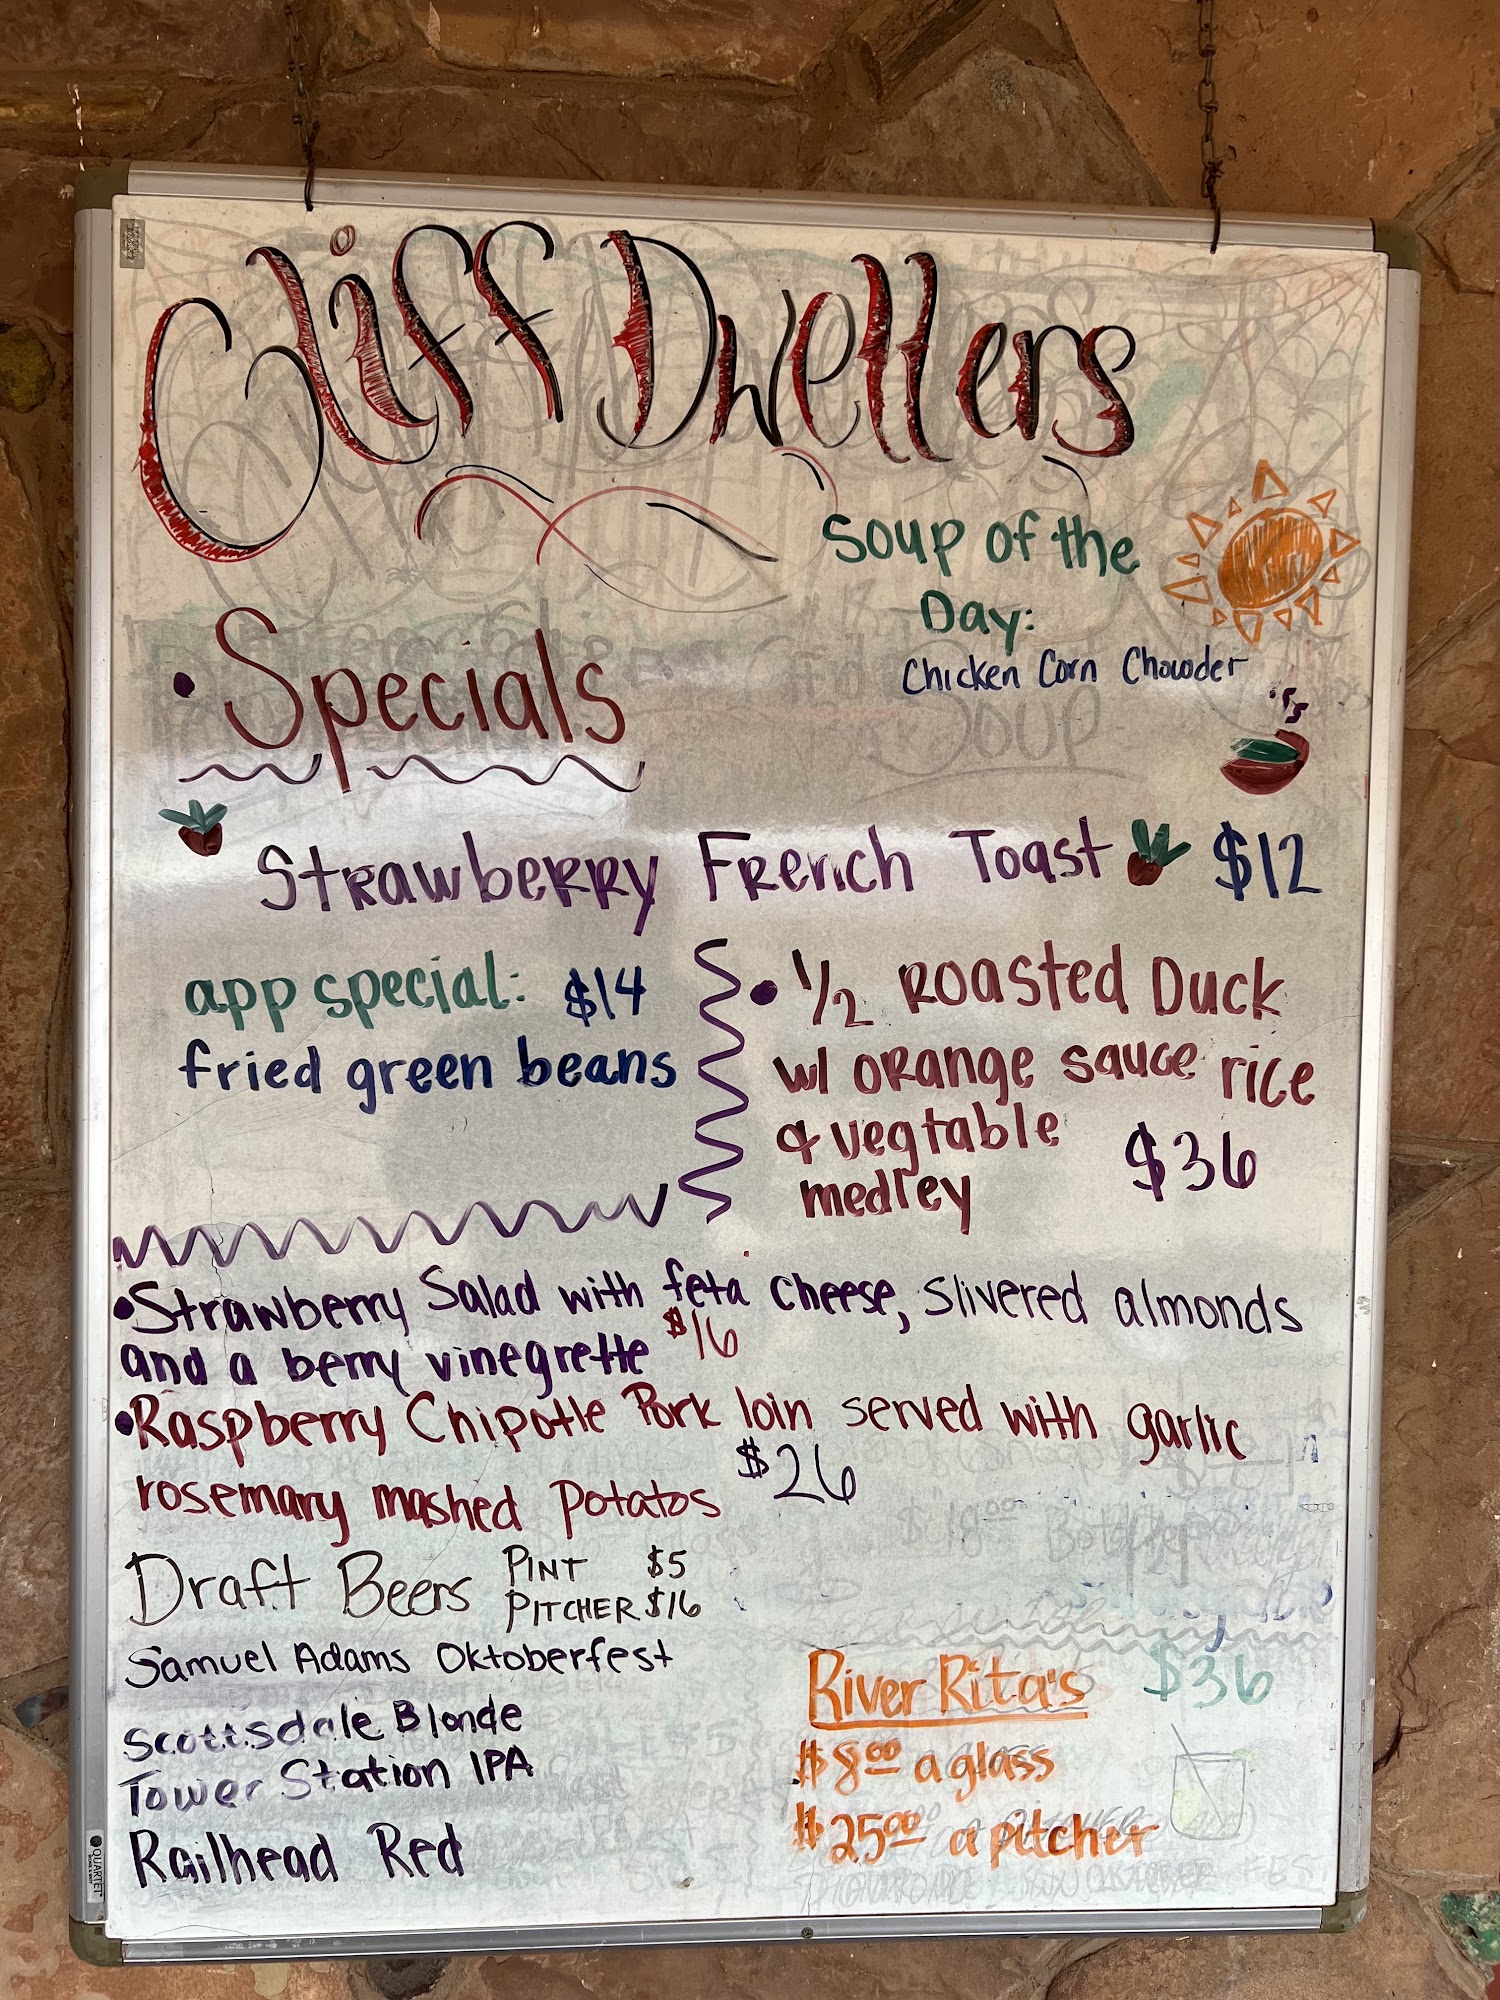 Cliff Dwellers
Soup of the
Day:
Chicken Corn Chowder
• Specials
SOUP
Strawberry French Toast $12
app special: $14
fried green beans
• 1/2 Roasted Duck
w/ orange sauce rice
& vegtable
medley $36
• Strawberry Salad with feta cheese, slivered almonds
and a berry vinegrette $16
• Raspberry Chipotle Pork loin served with garlic
rosemary mashed potatos $26
Draft Beers PINT $5
PITCHER $16
Samuel Adams Oktoberfest
Scottsdale Blonde
Tower Station IPA
Railhead Red
River Rita's $36
$8.00 a glass
$25.00 a pitcher
QUARTET